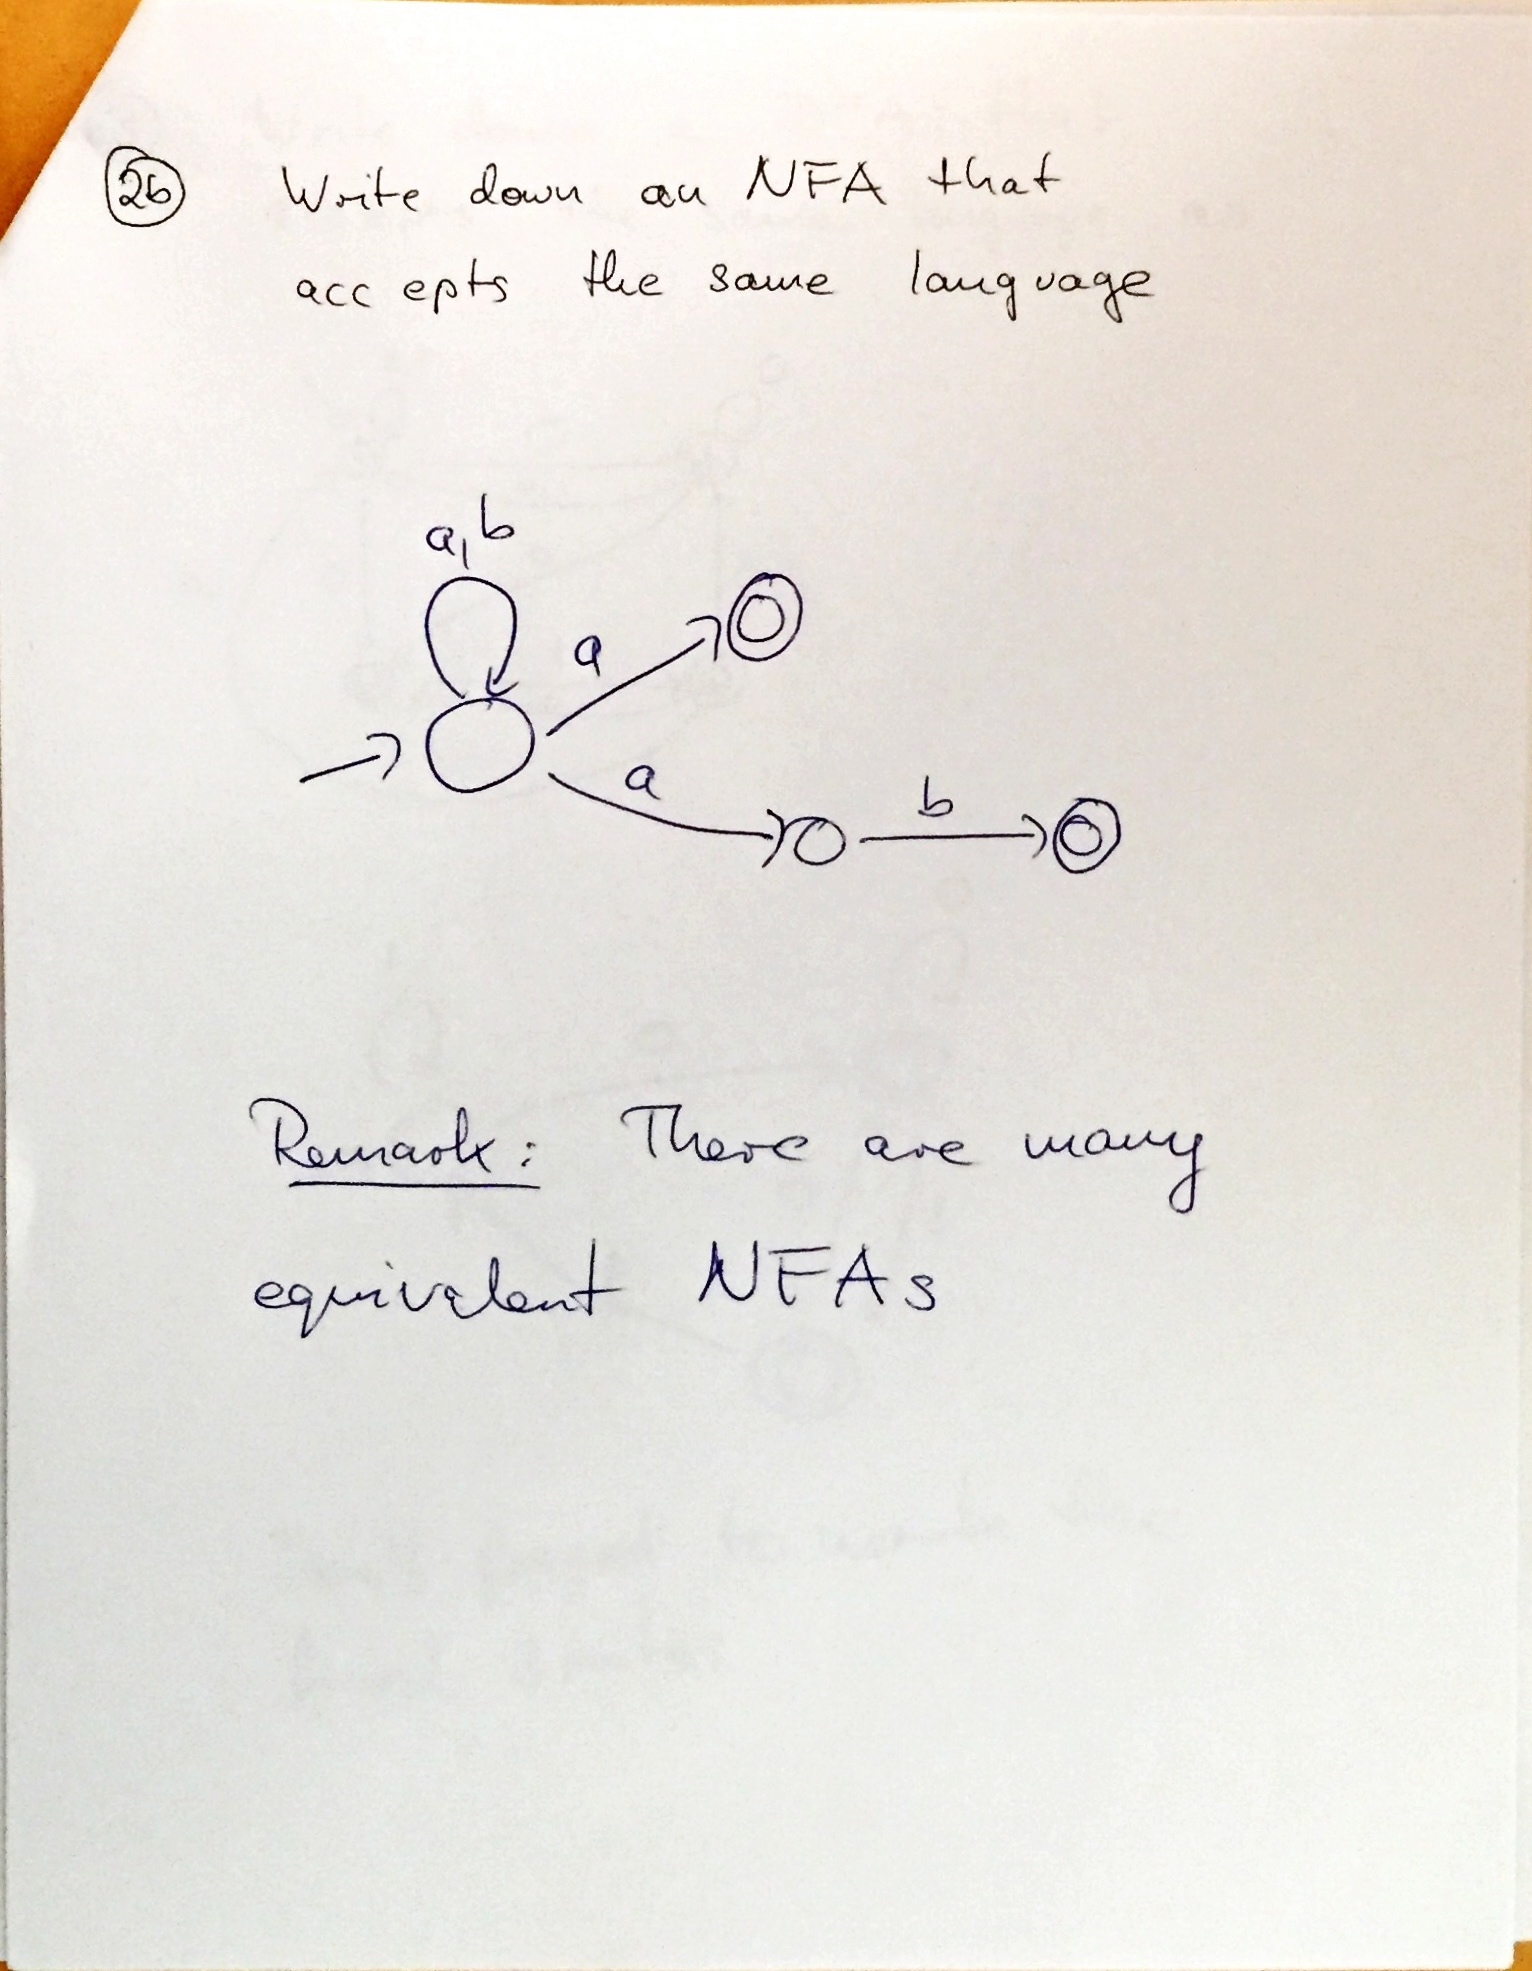 26 Write down an NFA that
accepts the same language
a,b
a
a
b
Remark: There are many
equivalent NFAs